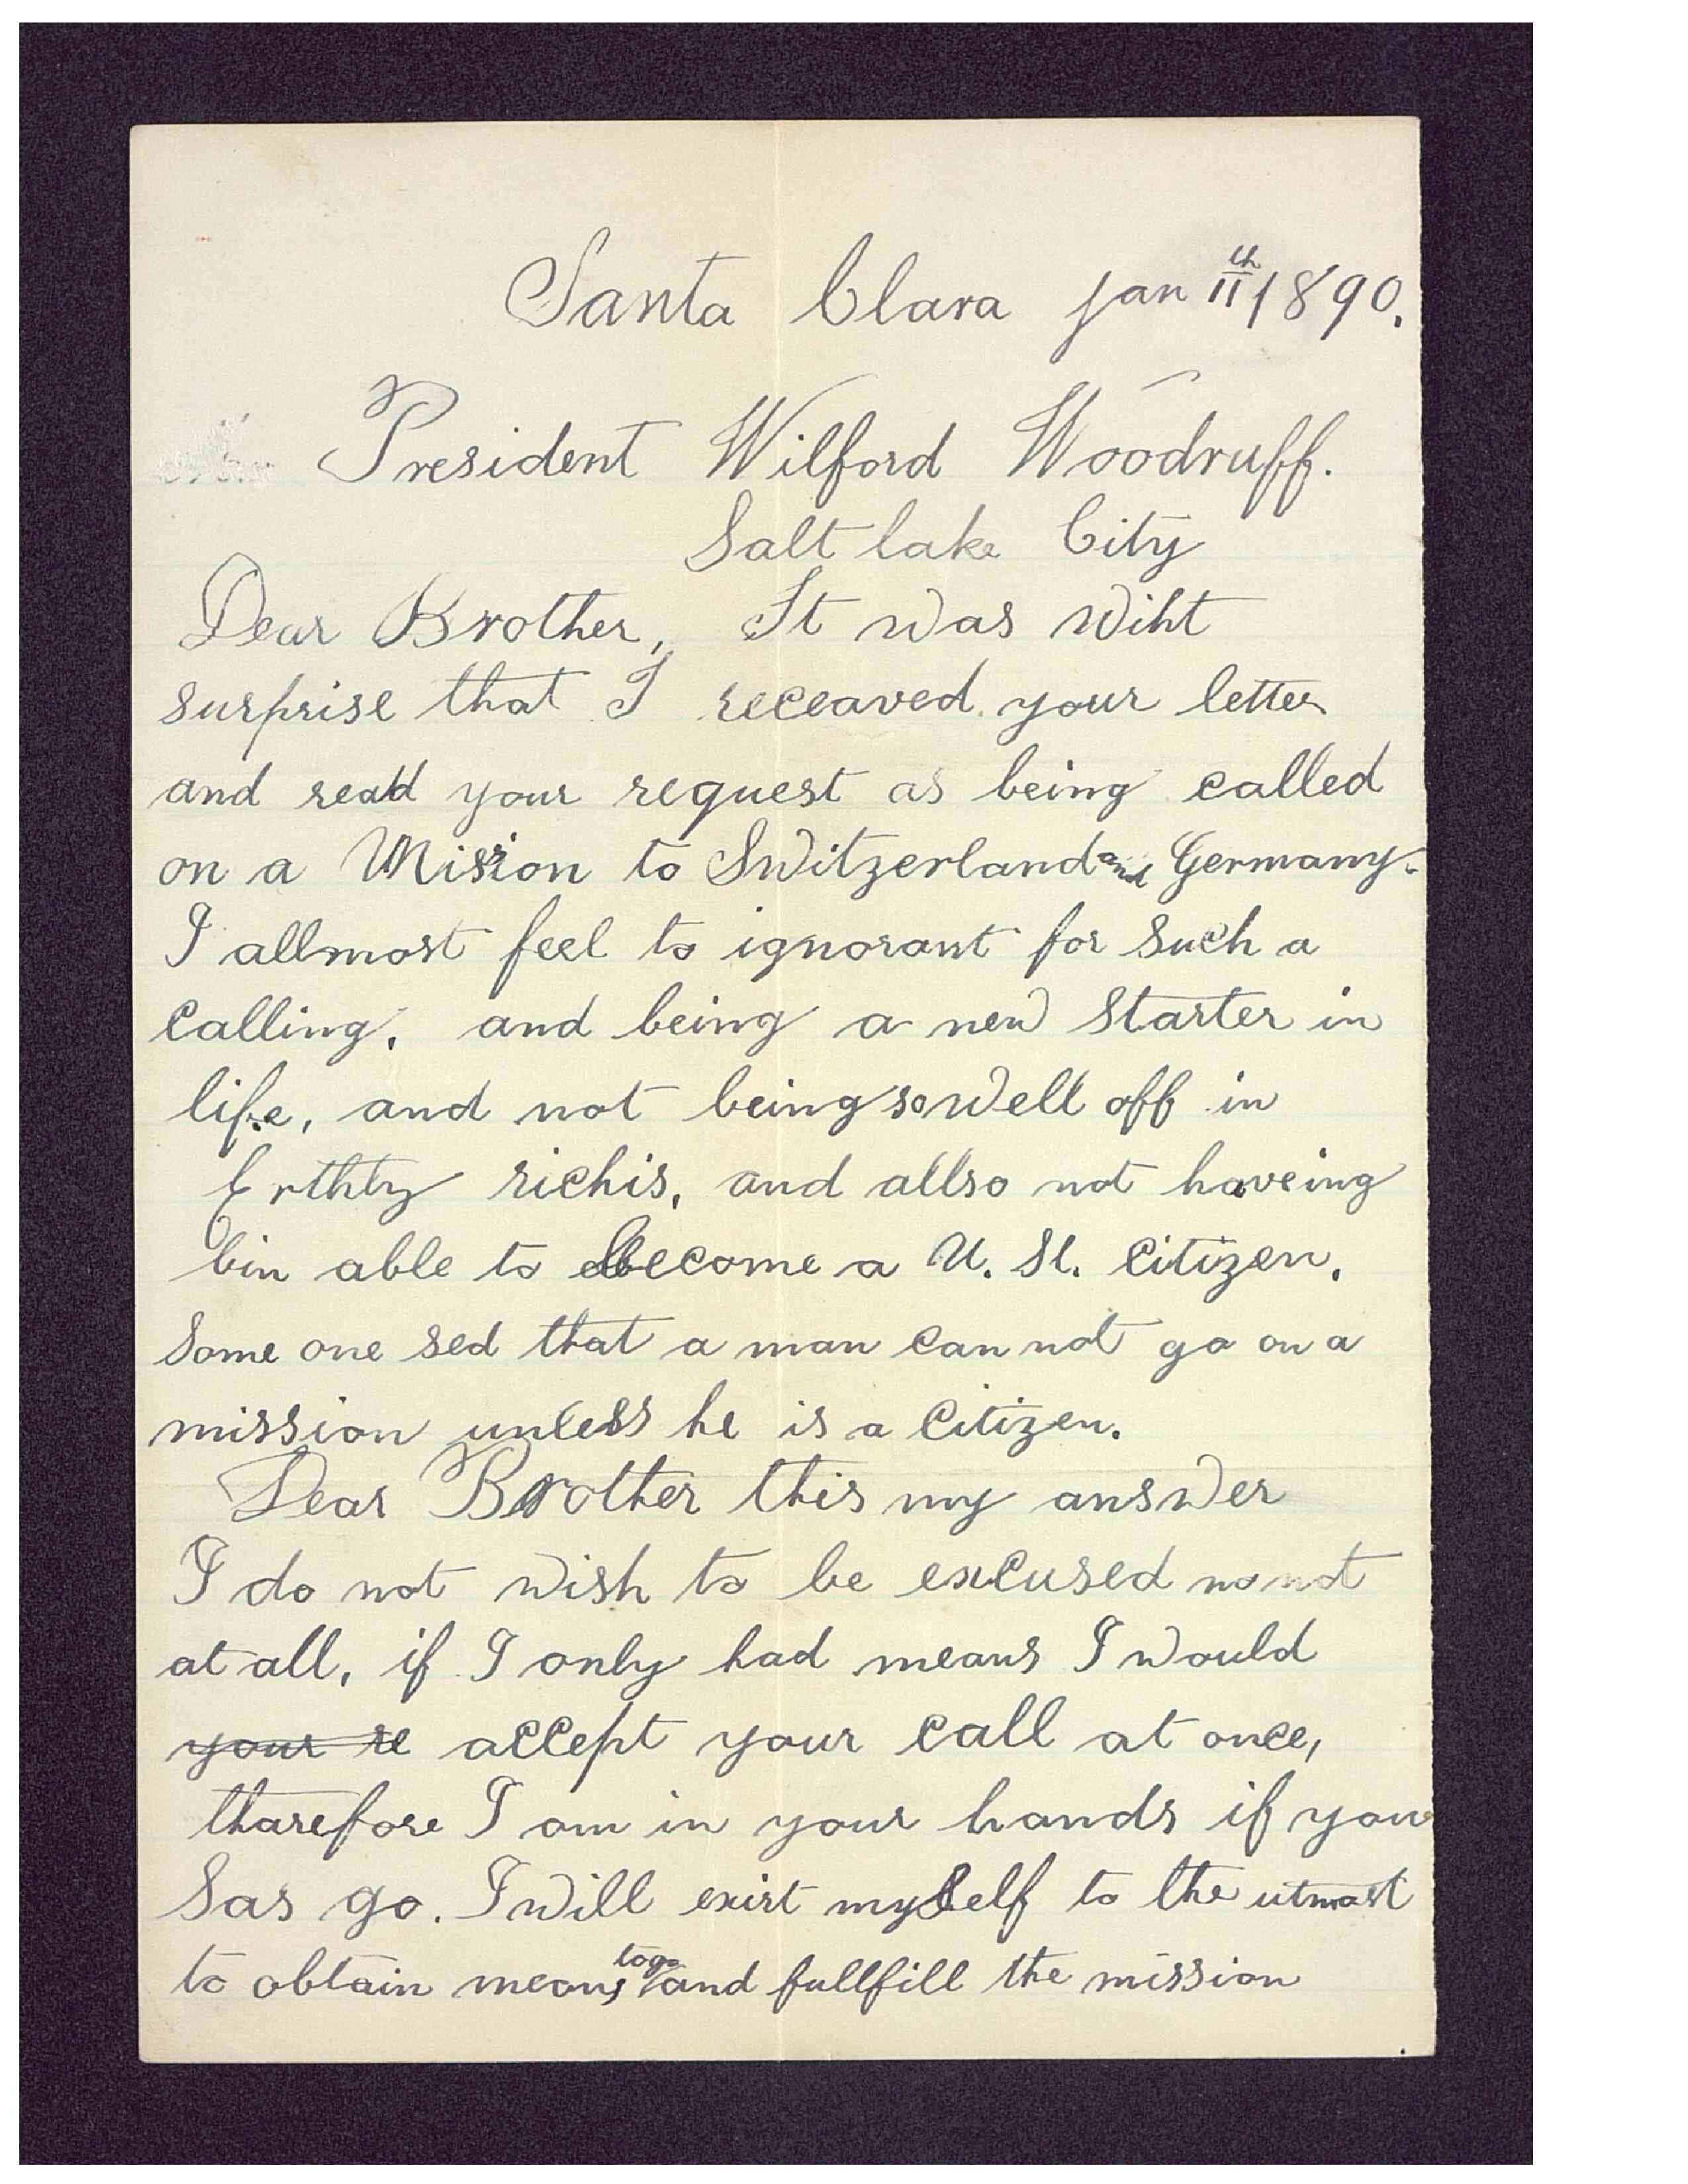 Santa Clara jan 11th 1890.
President Wilford Woodruff.
Salt lake City
Dear Brother, It was wiht
surprise that I receaved your letter
and read your request as being called
on a Mission to Switzerland and Germany.
I allmost feel to ignorant for such a
calling, and being a new starter in
life, and not being so well off in
Erthly richis, and allso not haveing
bin able to become a U. St. Citizen.
Some one sed that a man can not go on a
mission unless he is a Citizen.
Dear Brother this my answer
I do not wish to be excused no not
at all, if I only had means I would
your re accept your call at once,
tharefore I am in your hands if you
Sas go. I will exirt myself to the utmost
to obtain means to go and fullfill the mission